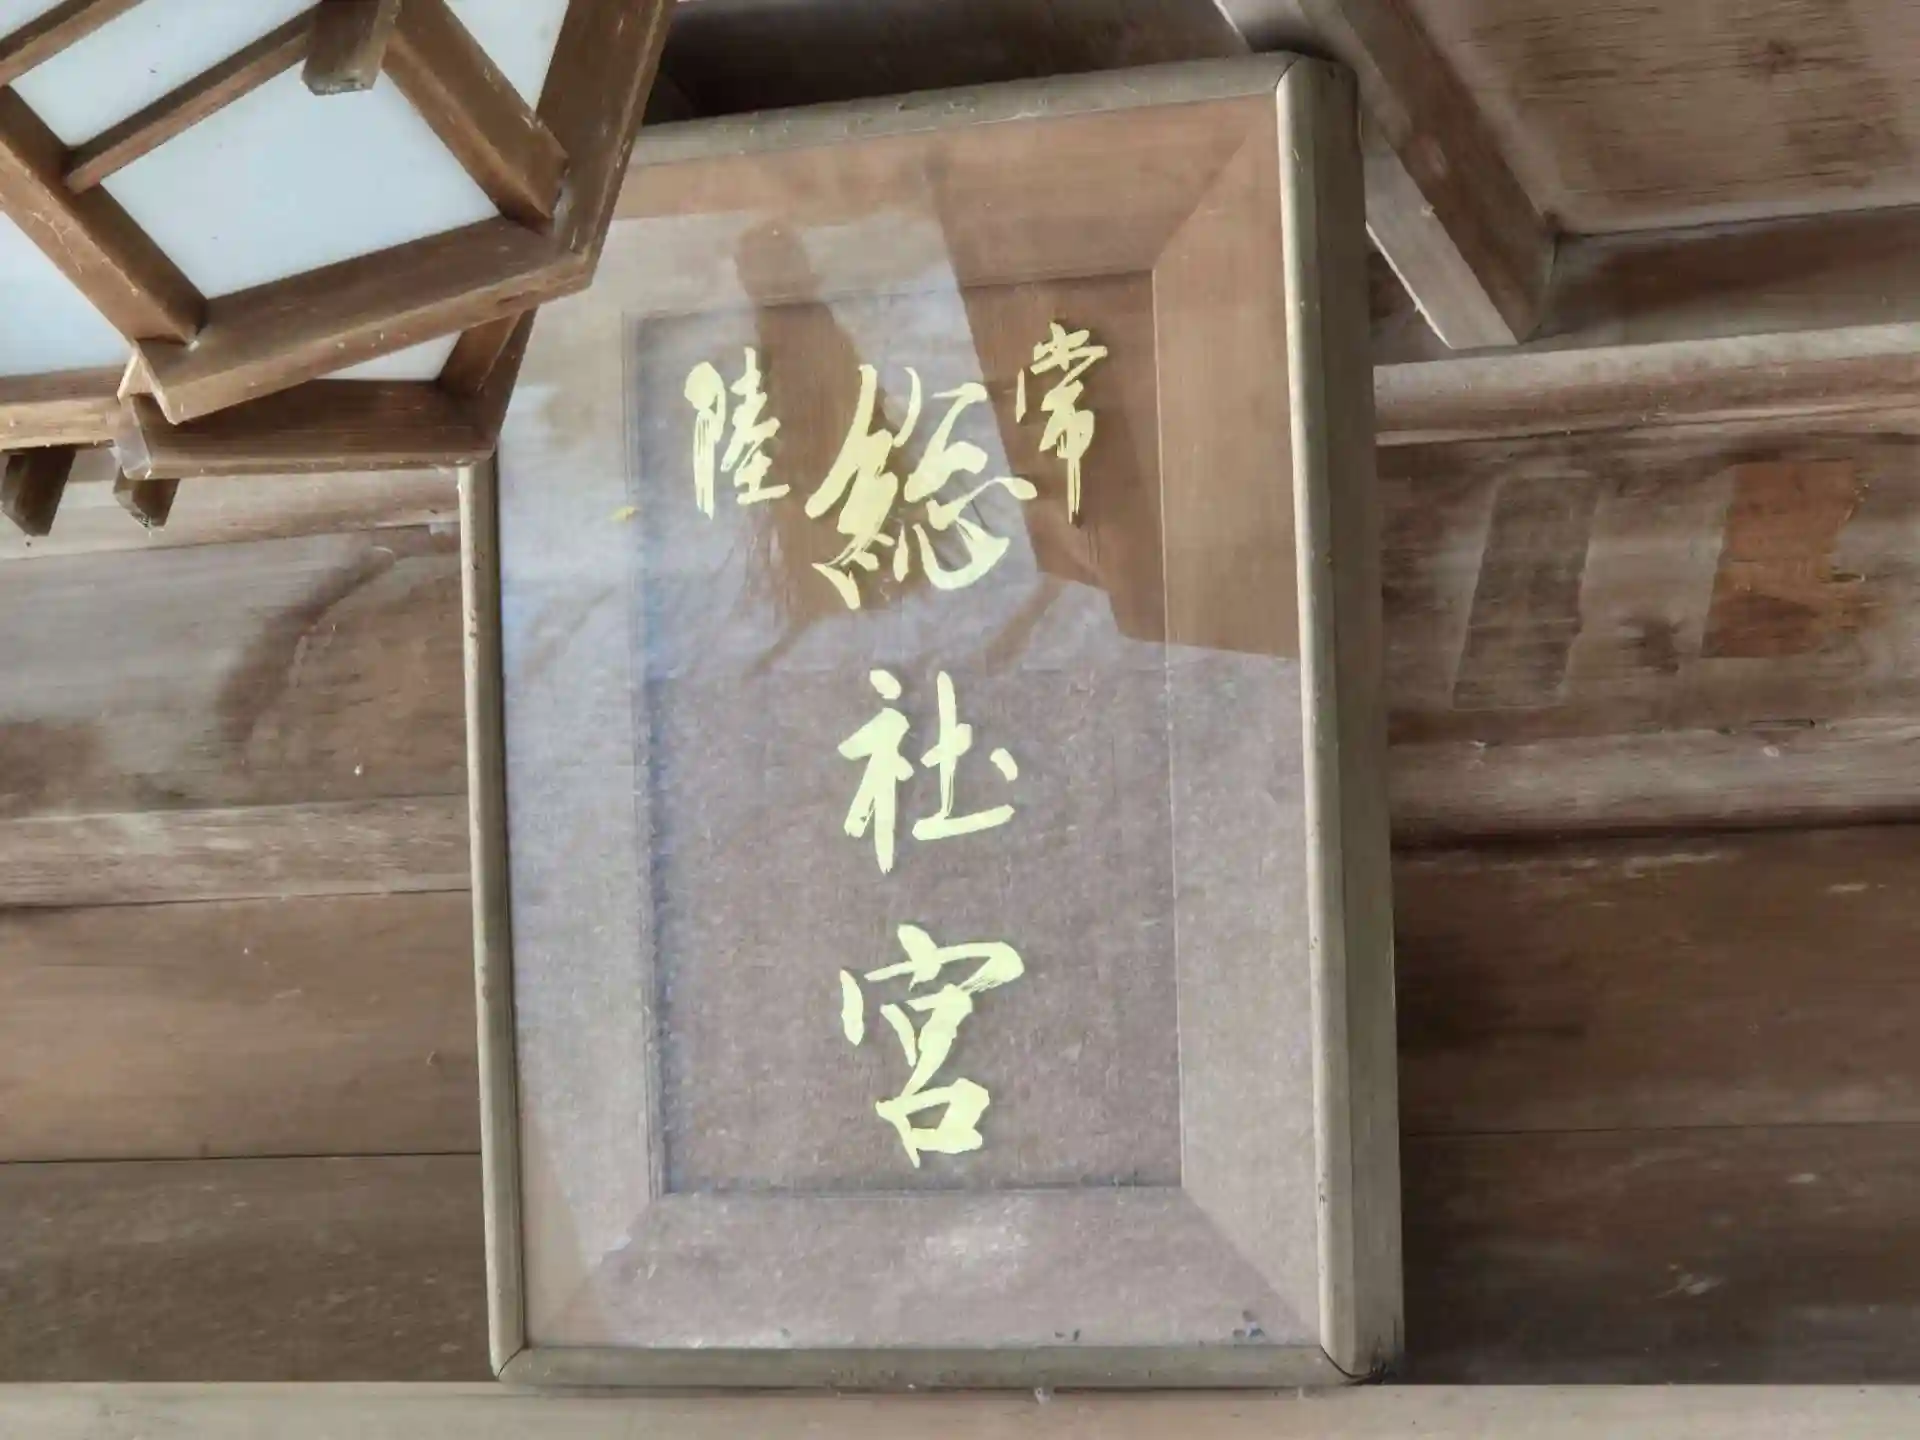 常陸
總社宮